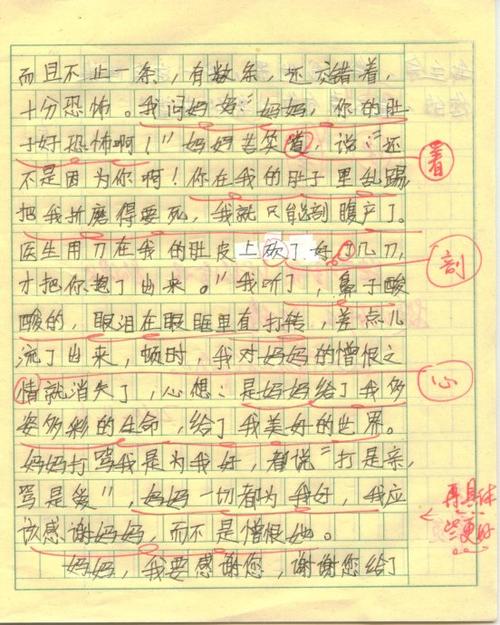 而且不止一条，有数条，还交错着，
十分恐怖。我问妈妈“妈妈，你的肚
子好恐怖啊！”妈妈苦笑道，说：“还
着
不是因为你啊！你在我的肚子里乱踢
把我折磨得要死，我就只能剖腹产了。
医生用刀在我的肚皮上砍了好几刀，
剖
才把你抱了出来。”我听了，鼻子酸
酸的，眼泪在眼眶里直打转，差点儿
流了出来，顿时，我对妈妈的憎恨之
情就消失了，心想：是妈妈给了我多
心
姿多彩的生命，给了我美好的世界。
妈妈打骂我是为我好，都说“打是亲，
骂是爱”，妈妈一切都为我好，我应
该感谢妈妈，而不是憎恨她。
再具体
些更好
妈妈，我要感谢您，谢谢您给了